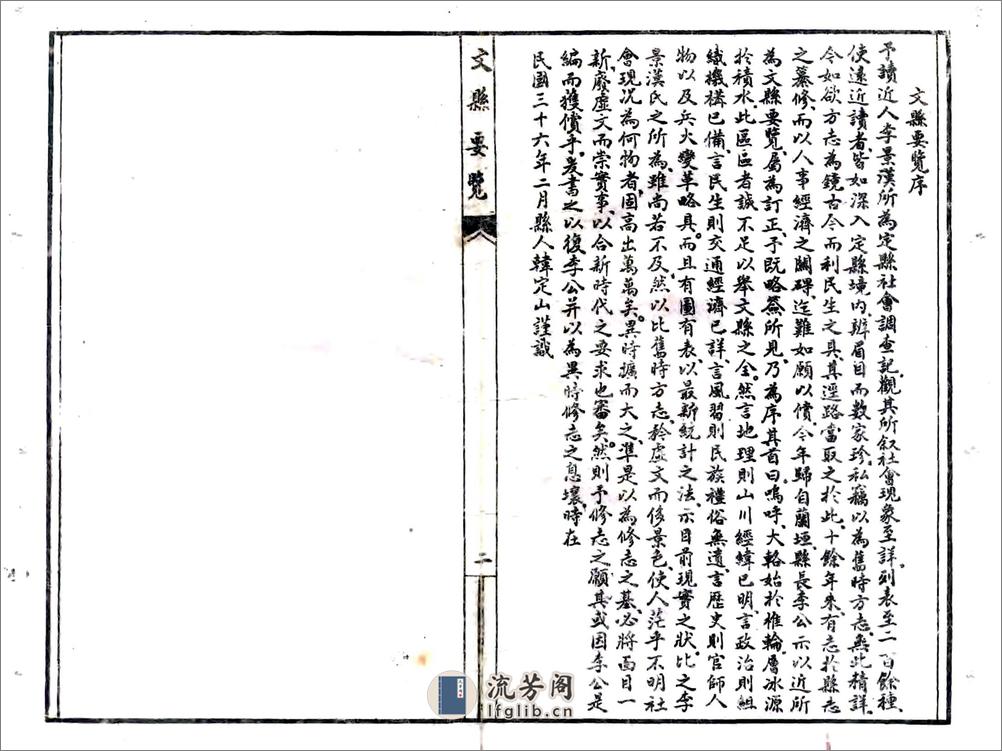 文縣要覽序
予讀近人李景漢所為定縣社會調查記、觀其所叙社會現象至詳、列表至二百餘種、
使遠近讀者、皆如深入定縣境內、辨眉目而數家珍、私竊以為舊時方志、無此精詳、
今如欲方志為鏡古今而利民生之具、其逕路當取之於此、十餘年來、有志於縣志
之纂修、而以人事經濟之關碍、迄難如願以償、今年歸自蘭垣、縣長李公示以近所
為文縣要覽、屬為訂正、予既略簽所見、乃為序其首曰、嗚呼、大輅始於椎輪、層冰源
於積水、此區區者、誠不足以舉文縣之全、然言地理則山川經緯已明、言政治則組
織機構已備、言民生則交通經濟已詳、言風習則民族禮俗無遺、言歷史則官師人
物以及兵火變革略具、而且有圖有表、以最新統計之法、示目前現實之狀、比之李
景漢氏之所為、雖尚若不及、然以比舊時方志、矜虛文而侈景色、使人茫乎不明社
會現况為何物者、固高出萬萬矣、異時擴而大之、準是以為修志之基、必將面目一
新、廢虛文而崇實事、以合新時代之要求也審矣、然則予修志之願、其或因李公是
編而獲償乎、爰書之以復李公、并以為異時修志之息壤、時在
民國三十六年二月縣人韓定山謹識
文縣要覽
二
流芳阁
lfglib.cn